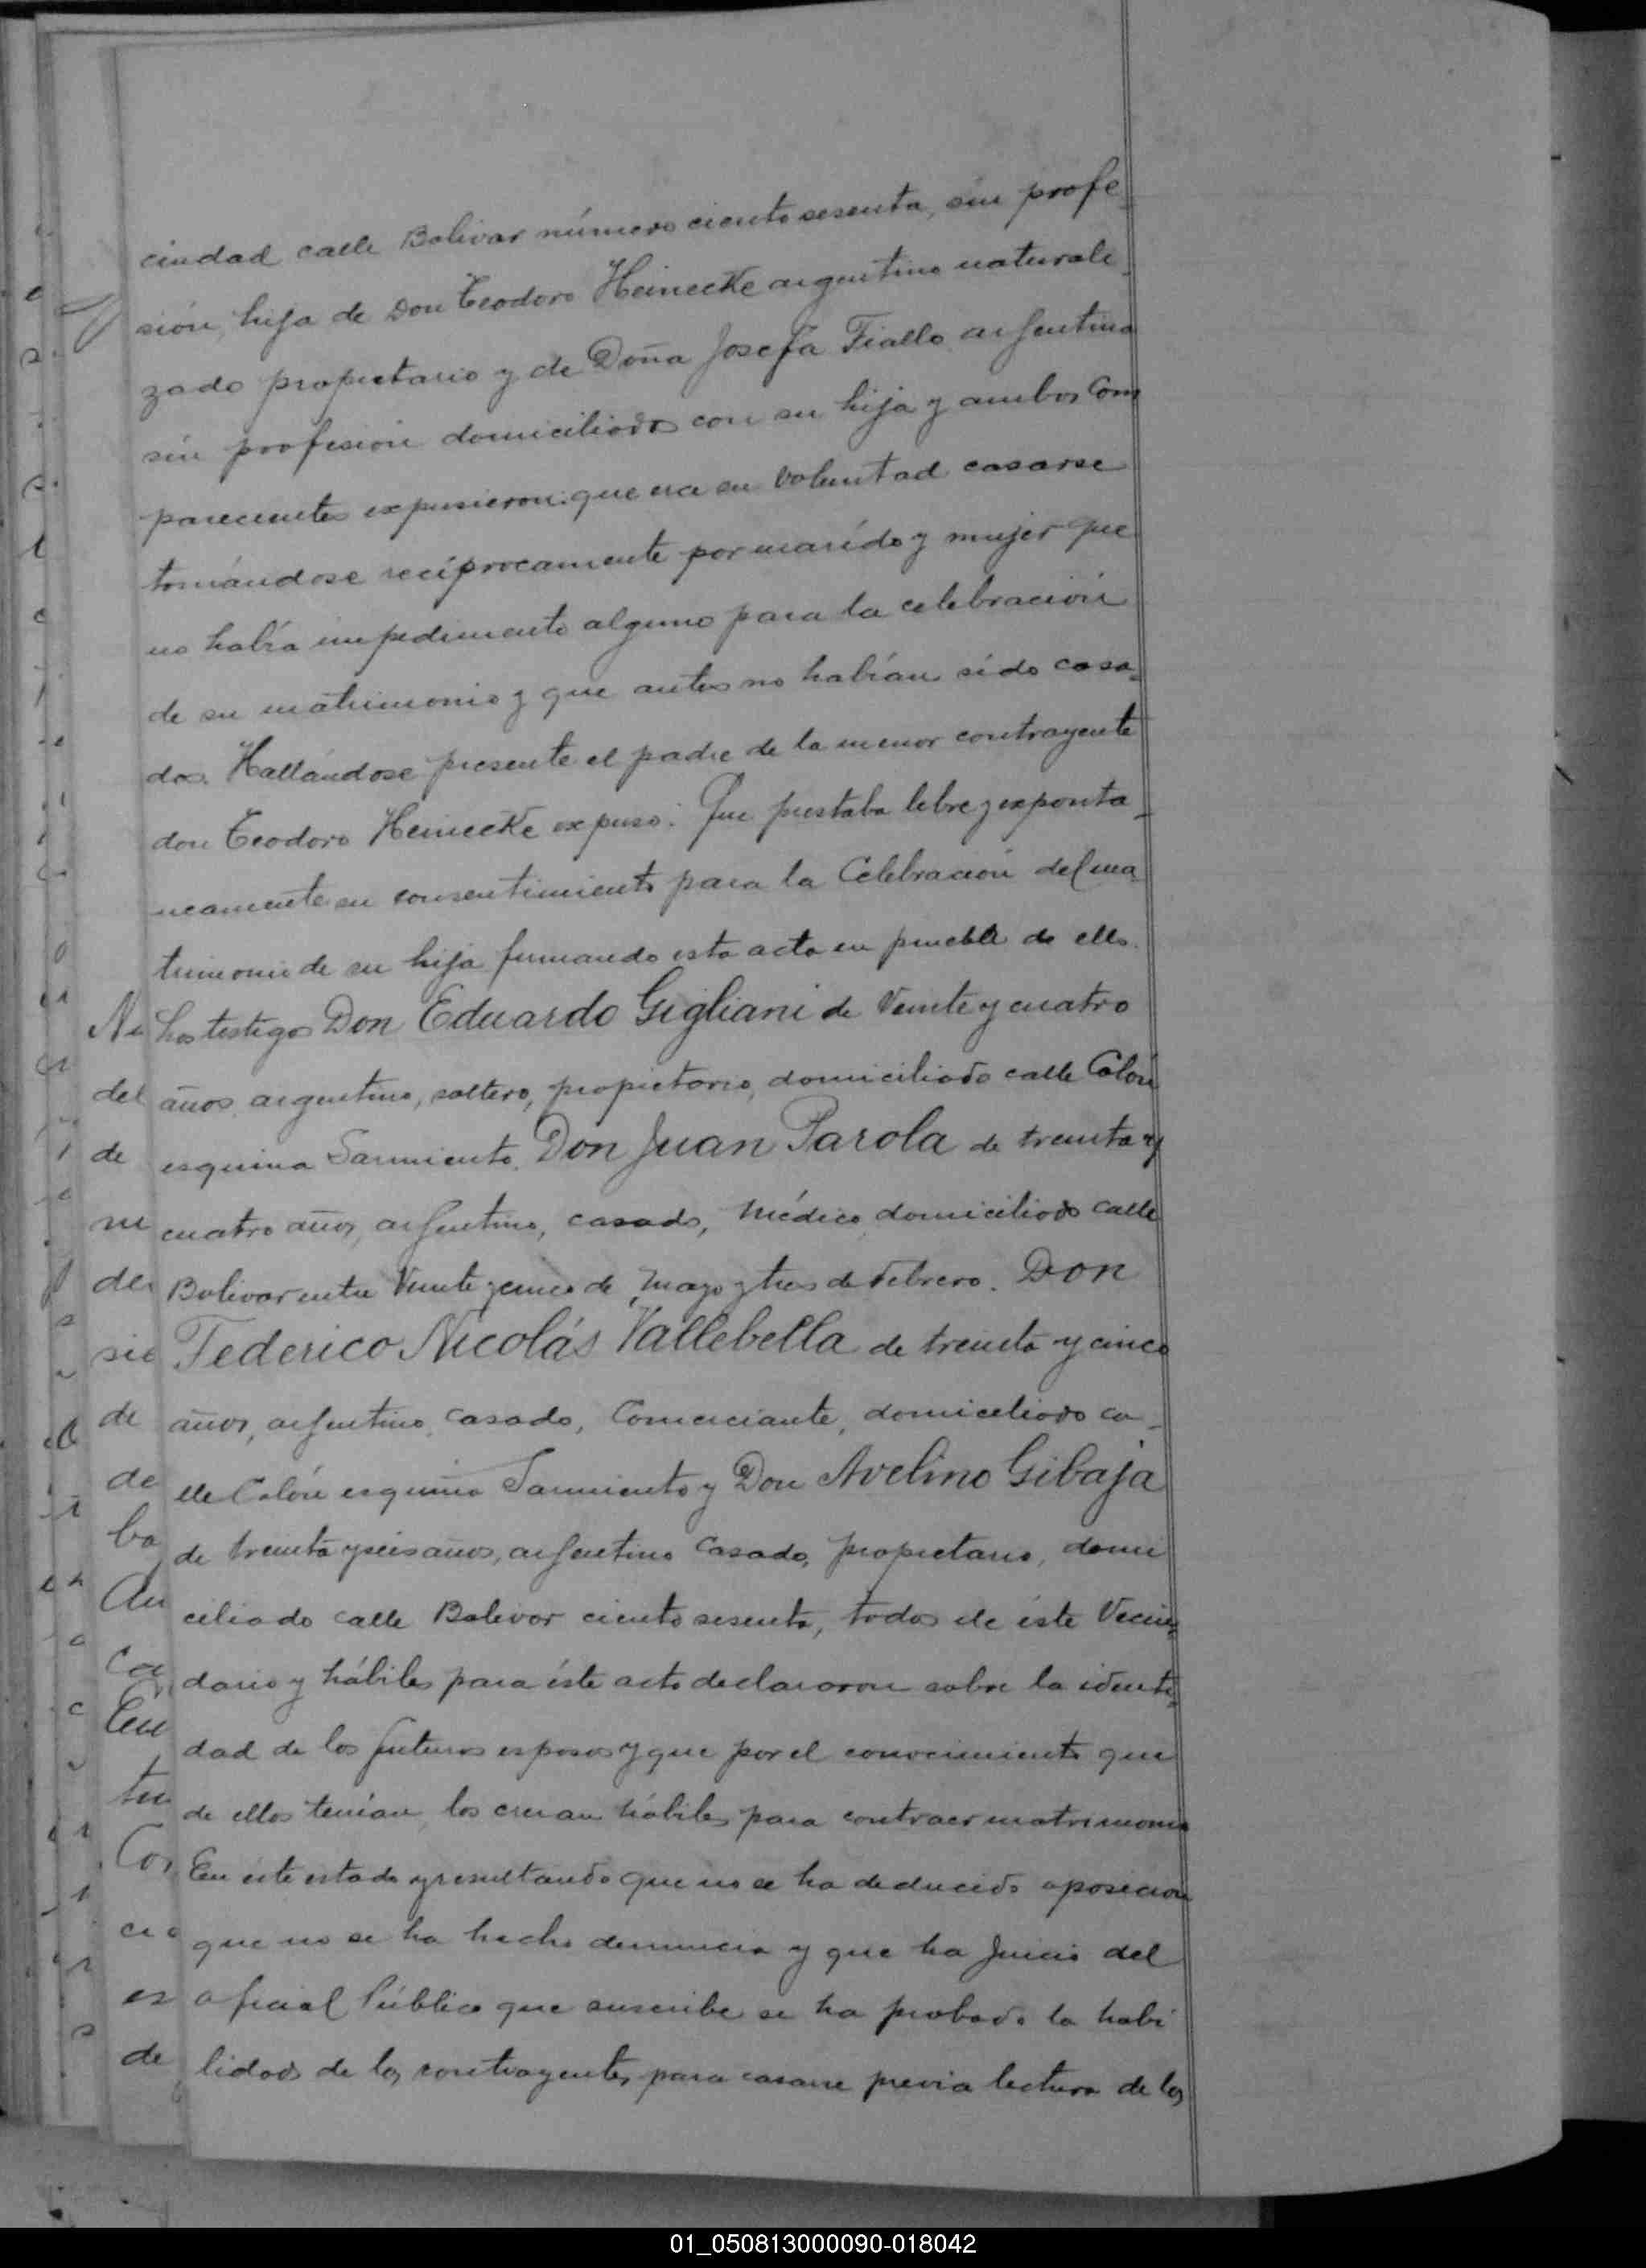 ciudad calle Bolivar número ciento sesenta, sin profe_
sión, hija de Don Teodoro Heinecke argentino naturali_
zado propietario y de Doña Josefa Fiallo argentina
sin profesión domiciliados con su hija y ambos Com
parecientes expusieron: que era su Voluntad casarse
tomándose recíprocamente por marido y mujer que
no había impedimento alguno para la celebración
de su matrimonio y que antes no habían sido casa_
dos. Hallándose presente el padre de la menor contrayente
don Teodoro Heinecke expuso: Que prestaba libre y exponta_
neamente su consentimiento para la Celebración del ma_
trimonio de su hija firmando esta acta en prueba de ello.
Los testigos Don Eduardo Gigliani de Veinte y cuatro
años, argentino, soltero, propietario, domiciliado calle Colón
esquina Sarmiento. Don Juan Parola de treinta y
cuatro años, argentino, casado, Médico, domiciliado calle
Bolivar entre Veinte y cinco de Mayo y tres de Febrero. Don
Federico Nicolás Vallebella de treinta y cinco
años, argentino, casado, Comerciante, domiciliado ca_
lle Colón esquina Sarmiento y Don Avelino Gibaja
de treinta y seis años, argentino Casado, propietario, domi
ciliado calle Bolivar ciento sesenta, todos de éste Vecin_
dario y hábiles para éste acto declararon sobre la identi_
dad de los futuros esposos y que por el conocimiento que
de ellos tenían, los creían hábiles para contraer matrimonio
En este estado y resultando que no se ha deducido oposición
que no se ha hecho denuncia y que ha Juicio del
oficial Público que suscribe se ha probado la habi
lidad de los contrayentes para casarse previa lectura de los
01_050813000090-018042